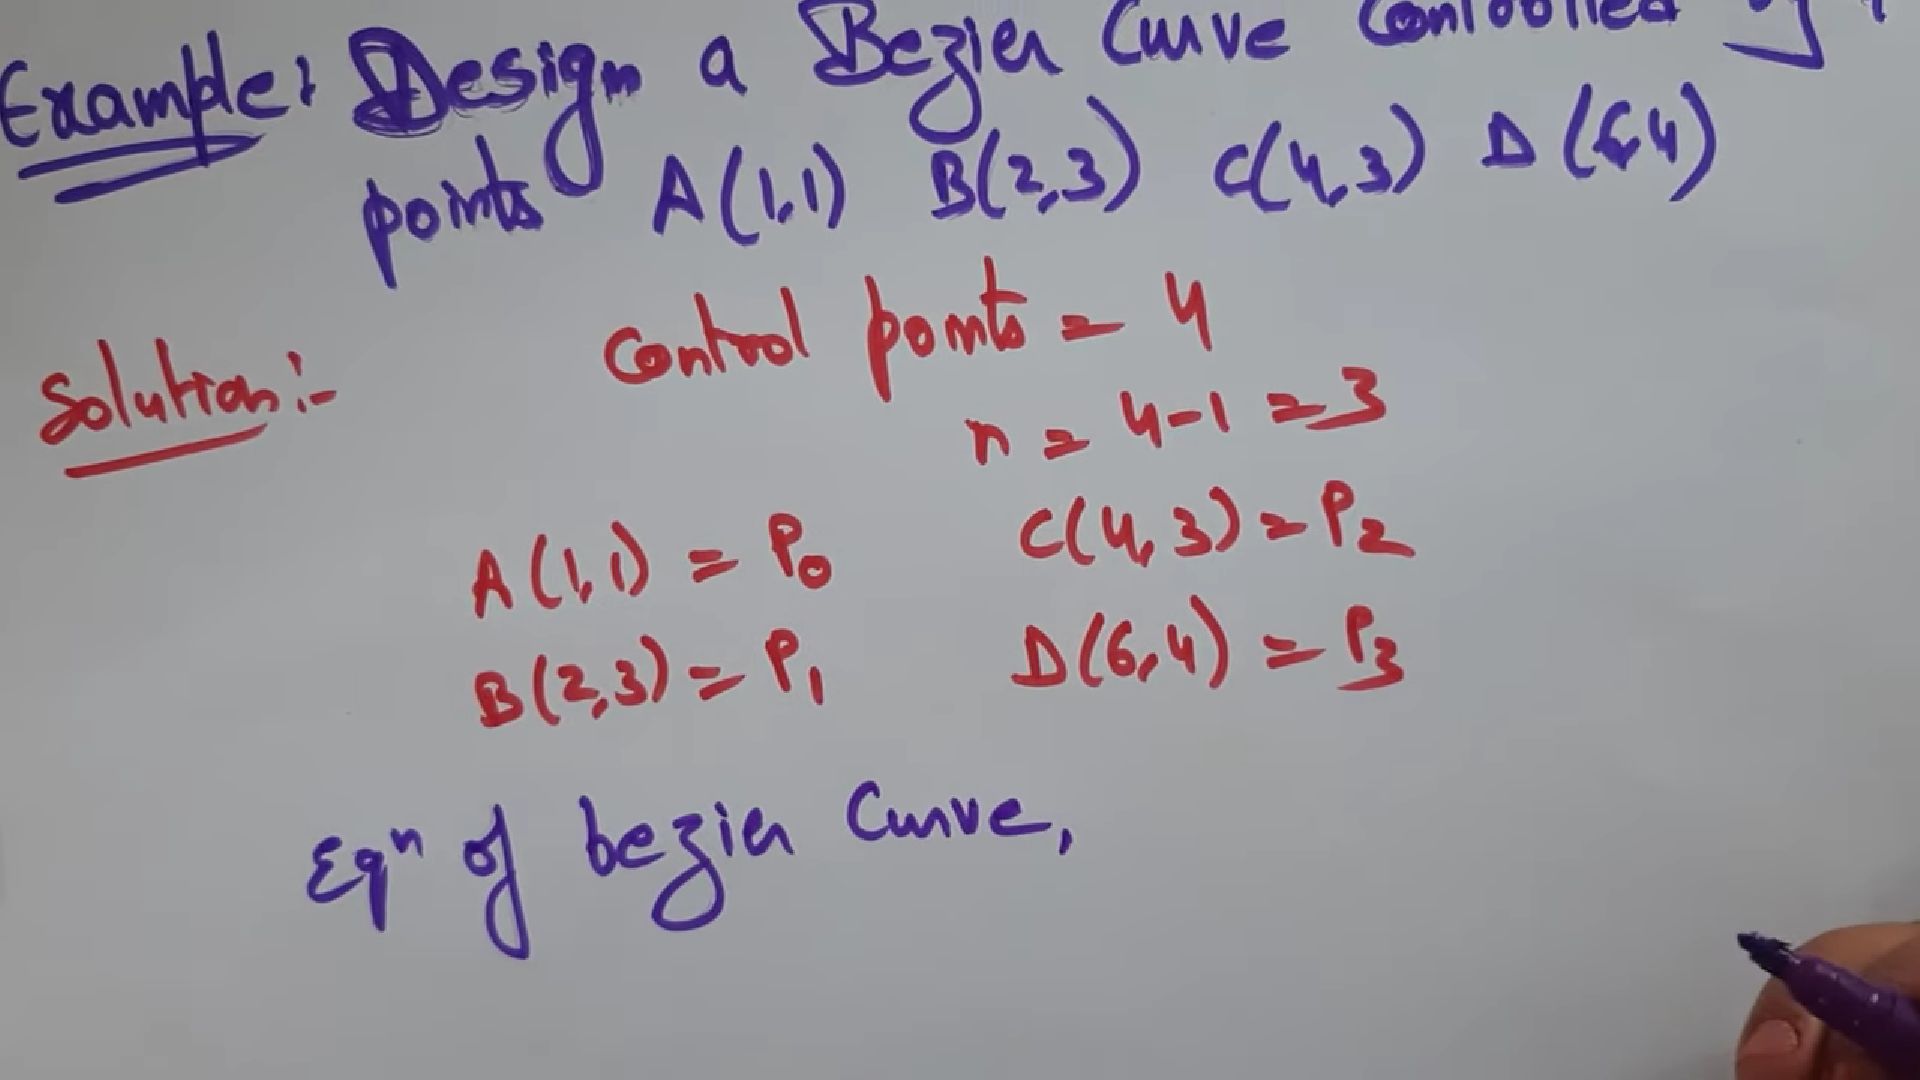 Example: Design a Bezier Curve Controlled by
points A(1,1) B(2,3) C(4,3) D(6,4)
Solution:- Control points = 4
n = 4-1 = 3
A(1,1) = P0 C(4,3) = P2
B(2,3) = P1 D(6,4) = P3
Eqn of bezier Curve,